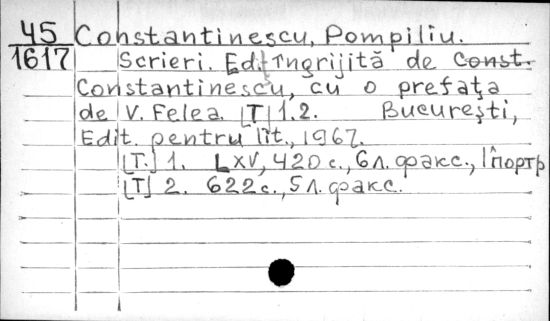 45 Constantinescu, Pompiliu.
1617 Scrieri. Ed. îngrijită de Const.
Constantinescu, cu o prefaţa
de V. Felea. [T] 1.2. Bucureşti,
Edit. pentru lit., 1967.
[T.] 1. LXV, 420 с., 6л. факс., 1 портр
[T] 2. 622 с., 5л. факс.